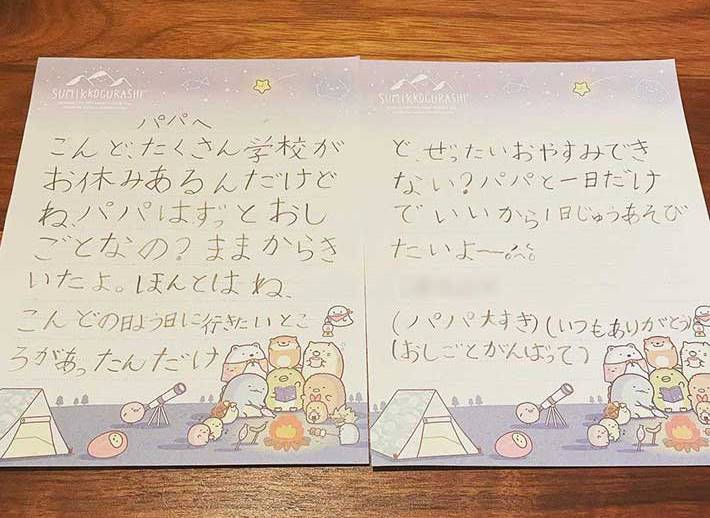 SUMIKKOGURASHI
パパへ
こんど、たくさん学校が
お休みあるんだけど
ね、パパは、ずっとおし
ごとなの？ままからき
いたよ。ほんとはね、
こんどの日よう日に行きたいとこ
ろがあったんだけ
SUMIKKOGURASHI
ど、ぜったいおやすみでき
ない？パパと一日だけ
でいいから1日じゅうあそび
たいよー。
(パパ大すき)(いつもありがとう)
(おしごとがんばって)